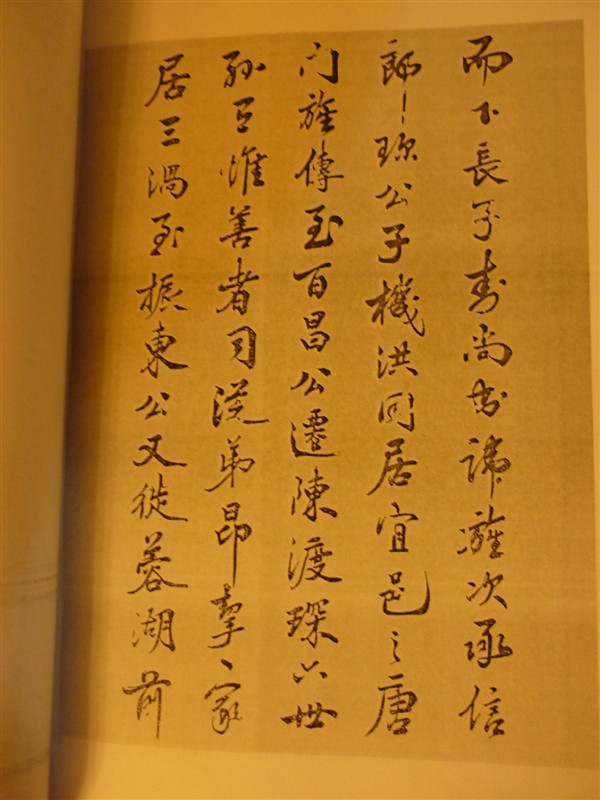 而下長子壽尚書諱次承信
郎琛公子機洪同居宜邑之唐
门旋傳至百昌公遷陳渡琛六世
孫曰惟善者同從弟昂挈家
居三渦至振東公又徙蓉湖前